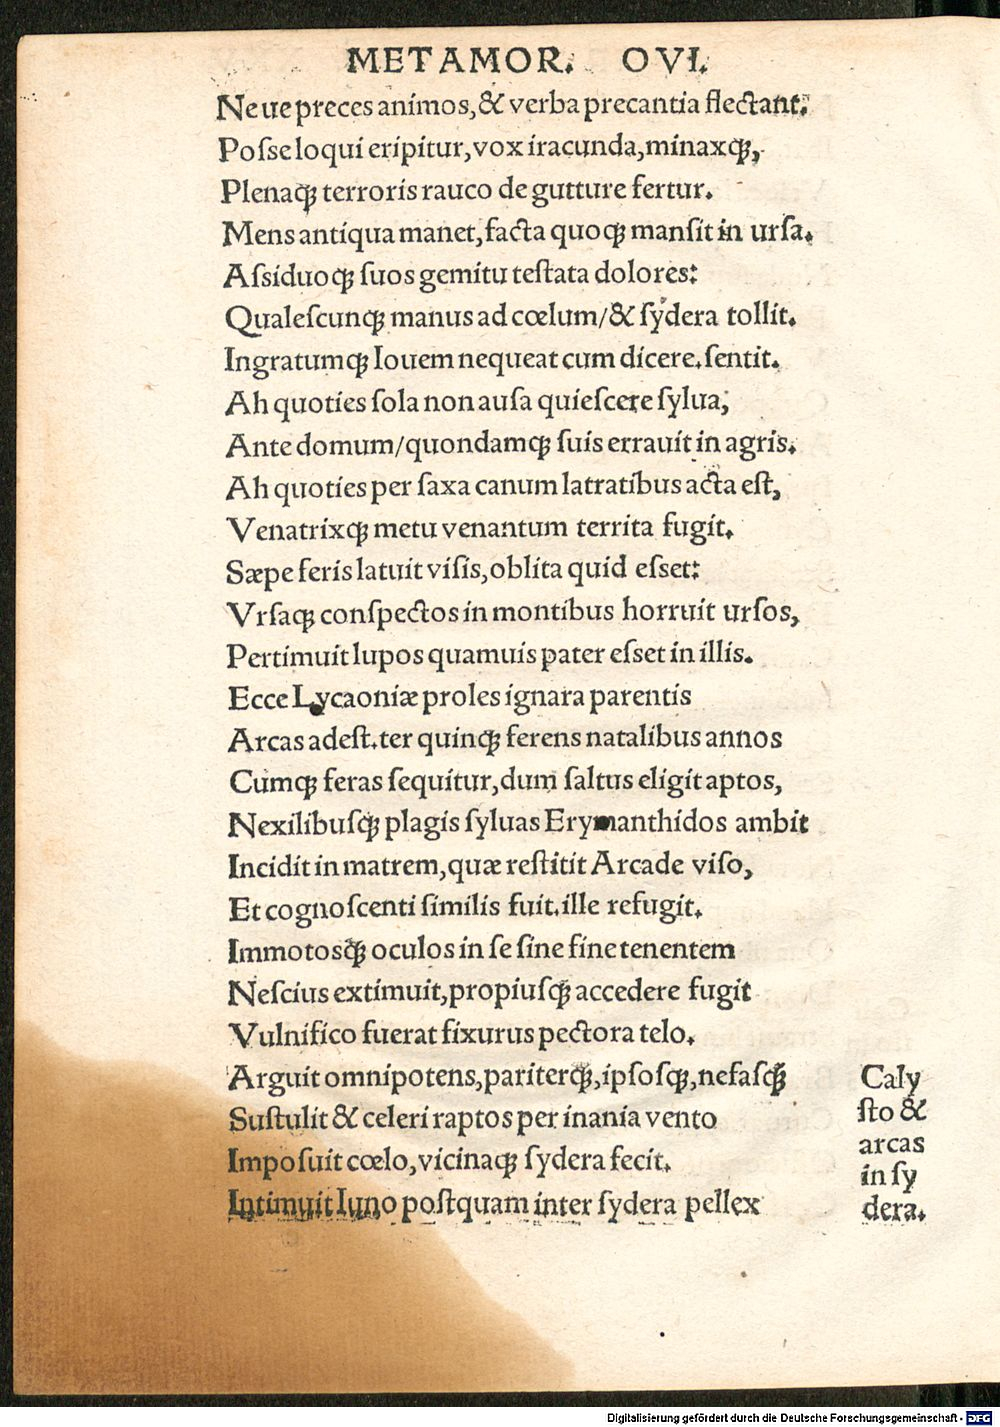 METAMOR. OVI.
Neue preces animos,& verba precantia flectant.
Posse loqui eripitur,vox iracunda,minaxqꝫ,
Plenaqꝫ terroris rauco de gutture fertur.
Mens antiqua manet,facta quoqꝫ mansit in ursa.
Assiduoqꝫ suos gemitu testata dolores:
Qualescunqꝫ manus ad cœlum/& sydera tollit.
Ingratumqꝫ Iouem nequeat cum dicere.sentit.
Ah quoties sola non ausa quiescere sylua,
Ante domum/quondamqꝫ suis errauit in agris.
Ah quoties per saxa canum latratibus acta est,
Venatrixqꝫ metu venantum territa fugit.
Sæpe feris latuit visis,oblita quid esset:
Vrsaqꝫ conspectos in montibus horruit ursos,
Pertimuit lupos quamuis pater esset in illis.
Ecce Lycaoniæ proles ignara parentis
Arcas adest.ter quinqꝫ ferens natalibus annos
Cumqꝫ feras sequitur,dum saltus eligit aptos,
Nexilibusqꝫ plagis syluas Erymanthidos ambit
Incidit in matrem,quæ restitit Arcade viso,
Et cognoscenti similis fuit.ille refugit.
Immotosqꝫ oculos in se sine fine tenentem
Nescius extimuit,propiusqꝫ accedere fugit
Vulnifico fuerat fixurus pectora telo.
Arguit omnipotens,pariterqꝫ,ipsosqꝫ,nefasqꝫ
Sustulit & celeri raptos per inania vento
Imposuit cœlo,vicinaqꝫ sydera fecit.
Intimuit Iuno postquam inter sydera pellex
Caly
sto &
arcas
in sy
dera.
Digitalisierung gefördert durch die Deutsche Forschungsgemeinschaft - DFG